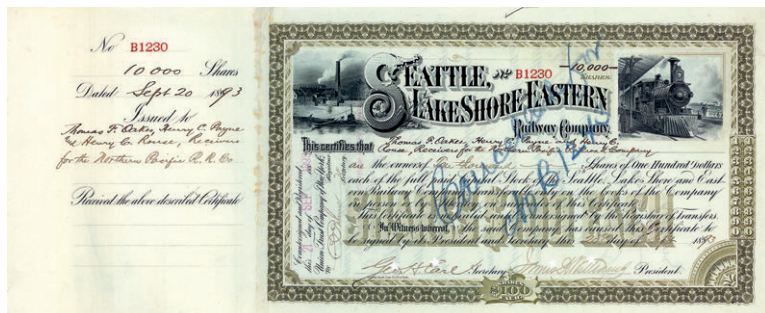 No B1230
10000 Shares
Dated Sept 20 1893
Issued to
Thomas F. Oakes, Henry C. Payne
& Henry C. Rouse, Receivers
for the Northern Pacific R. R. Co.
Received the above described Certificate
SEATTLE,
No B1230
—10,000—
SHARES.
LAKE SHORE & EASTERN
Railway Company.
This certifies that Thomas F. Oakes, Henry C. Payne and Henry C.
Rouse, Receivers for the Northern Pacific R. R. Company
are the owners of Ten Thousand Shares of One Hundred Dollars
each of the full paid Capital Stock of the Seattle, Lake Shore and East-
ern Railway Company, transferable only on the Books of the Company
in person or by Attorney on surrender of this Certificate.
This Certificate is not valid until countersigned by the Registrar of Transfers.
In Witness whereof, the said Company has caused this Certificate to
be signed by its President and Secretary this day of 1893
Secretary
President.
Countersigned and Registered
this 21 day of SEP
Union Trust Company of New York,
Cancelled
SHARES
$100
EACH